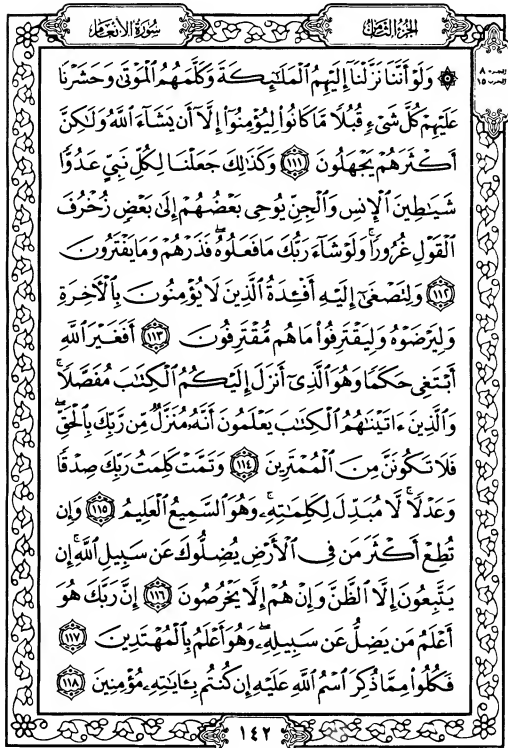 الجزء الثامن
سورة الأنعام
۞ وَلَوْ أَنَّنَا نَزَّلْنَآ إِلَيْهِمُ ٱلْمَلَـٰٓئِكَةَ وَكَلَّمَهُمُ ٱلْمَوْتَىٰ وَحَشَرْنَا
عَلَيْهِمْ كُلَّ شَىْءٍ قُبُلًا مَّا كَانُوا۟ لِيُؤْمِنُوٓا۟ إِلَّآ أَن يَشَآءَ ٱللَّهُ وَلَـٰكِنَّ
أَكْثَرَهُمْ يَجْهَلُونَ ١١١ وَكَذَٰلِكَ جَعَلْنَا لِكُلِّ نَبِىٍّ عَدُوًّا
شَيَـٰطِينَ ٱلْإِنسِ وَٱلْجِنِّ يُوحِى بَعْضُهُمْ إِلَىٰ بَعْضٍ زُخْرُفَ
ٱلْقَوْلِ غُرُورًا ۚ وَلَوْ شَآءَ رَبُّكَ مَا فَعَلُوهُ ۖ فَذَرْهُمْ وَمَا يَفْتَرُونَ
١١٢ وَلِتَصْغَىٰٓ إِلَيْهِ أَفْـِٔدَةُ ٱلَّذِينَ لَا يُؤْمِنُونَ بِٱلْـَٔاخِرَةِ
وَلِيَرْضَوْهُ وَلِيَقْتَرِفُوا۟ مَا هُم مُّقْتَرِفُونَ ١١٣ أَفَغَيْرَ ٱللَّهِ
أَبْتَغِى حَكَمًا وَهُوَ ٱلَّذِىٓ أَنزَلَ إِلَيْكُمُ ٱلْكِتَـٰبَ مُفَصَّلًا ۚ
وَٱلَّذِينَ ءَاتَيْنَـٰهُمُ ٱلْكِتَـٰبَ يَعْلَمُونَ أَنَّهُۥ مُنَزَّلٌ مِّن رَّبِّكَ بِٱلْحَقِّ ۖ
فَلَا تَكُونَنَّ مِنَ ٱلْمُمْتَرِينَ ١١٤ وَتَمَّتْ كَلِمَتُ رَبِّكَ صِدْقًا
وَعَدْلًا ۚ لَّا مُبَدِّلَ لِكَلِمَـٰتِهِۦ ۚ وَهُوَ ٱلسَّمِيعُ ٱلْعَلِيمُ ١١٥ وَإِن
تُطِعْ أَكْثَرَ مَن فِى ٱلْأَرْضِ يُضِلُّوكَ عَن سَبِيلِ ٱللَّهِ ۚ إِن
يَتَّبِعُونَ إِلَّا ٱلظَّنَّ وَإِنْ هُمْ إِلَّا يَخْرُصُونَ ١١٦ إِنَّ رَبَّكَ هُوَ
أَعْلَمُ مَن يَضِلُّ عَن سَبِيلِهِۦ ۖ وَهُوَ أَعْلَمُ بِٱلْمُهْتَدِينَ ١١٧
فَكُلُوا۟ مِمَّا ذُكِرَ ٱسْمُ ٱللَّهِ عَلَيْهِ إِن كُنتُم بِـَٔايَـٰتِهِۦ مُؤْمِنِينَ ١١٨
١٤٢